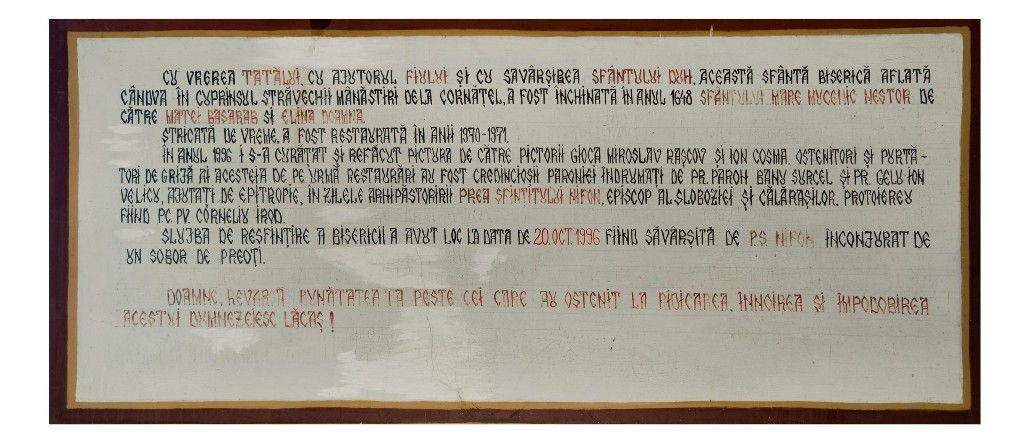 CU VREREA TATĂLUI, CU AJUTORUL FIULUI ȘI CU SĂVÂRȘIREA SFÂNTULUI DUH, ACEASTĂ SFÂNTĂ BISERICĂ AFLATĂ
CÂNDVA ÎN CUPRINSUL STRĂVECHII MÂNĂSTIRI DE LA CORNĂȚEL, A FOST ÎNCHINATĂ ÎN ANUL 1648 SFÂNTULUI MARE MUCENIC NESTOR DE
CĂTRE MATEI BASARAB ȘI ELINA DOAMNA.
STRICATĂ DE VREME, A FOST RESTAURATĂ ÎN ANII 1970-1971.
ÎN ANUL 1996 I S-A CURĂȚAT ȘI REFĂCUT PICTURA DE CĂTRE PICTORII GIOCA MIROSLAV RAȘCOV ȘI ION COSMA. OSTENITORI ȘI PURTĂ-
TORI DE GRIJĂ AI ACESTEIA DE PE URMĂ RESTAURĂRI AU FOST CREDINCIOȘII PAROHIEI ÎNDRUMAȚI DE PR. PAROH BANU SURCEL ȘI PR. GELU ION
VELICU, AJUTAȚI DE EPITROPIE, ÎN ZILELE ARHIPĂSTORIRII PREA SFINȚITULUI NIFON, EPISCOP AL SLOBOZIEI ȘI CĂLĂRAȘILOR, PROTOIEREU
FIIND P.C. PV. CORNELIU IROD.
SLUJBA DE RESFINȚIRE A BISERICII A AVUT LOC LA DATA DE 20.OCT.1996 FIIND SĂVÂRȘITĂ DE P.S. NIFON ÎNCONJURAT DE
UN SOBOR DE PREOȚI.
DOAMNE, REVARSĂ BUNĂTATEA TA PESTE CEI CARE AU OSTENIT LA RIDICAREA, ÎNNOIREA ȘI ÎMPODOBIREA
ACESTUI DUMNEZEIESC LĂCAȘ!